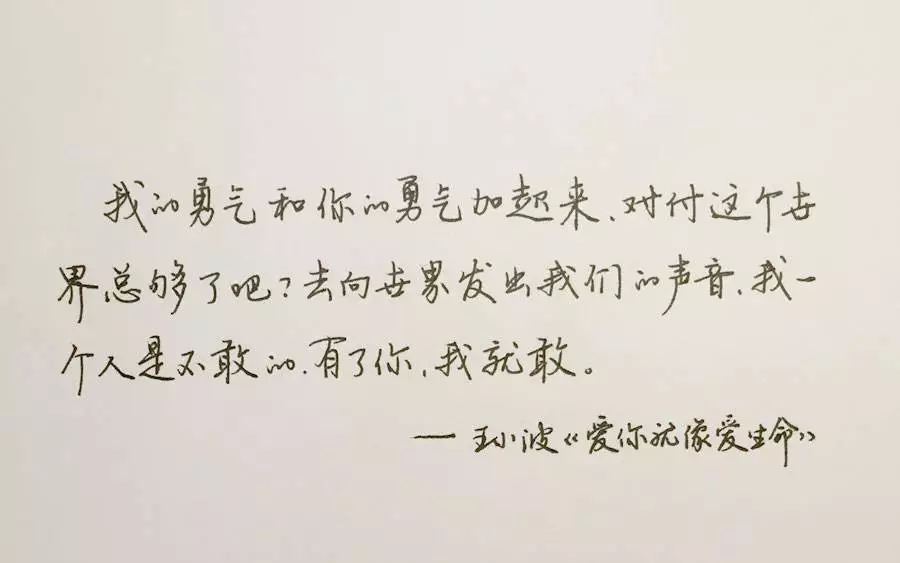 我的勇气和你的勇气加起来、对付这个世
界总够了吧？去向世界发出我们的声音、我一
个人是不敢的、有了你，我就敢。
—— 王小波《爱你就像爱生命》